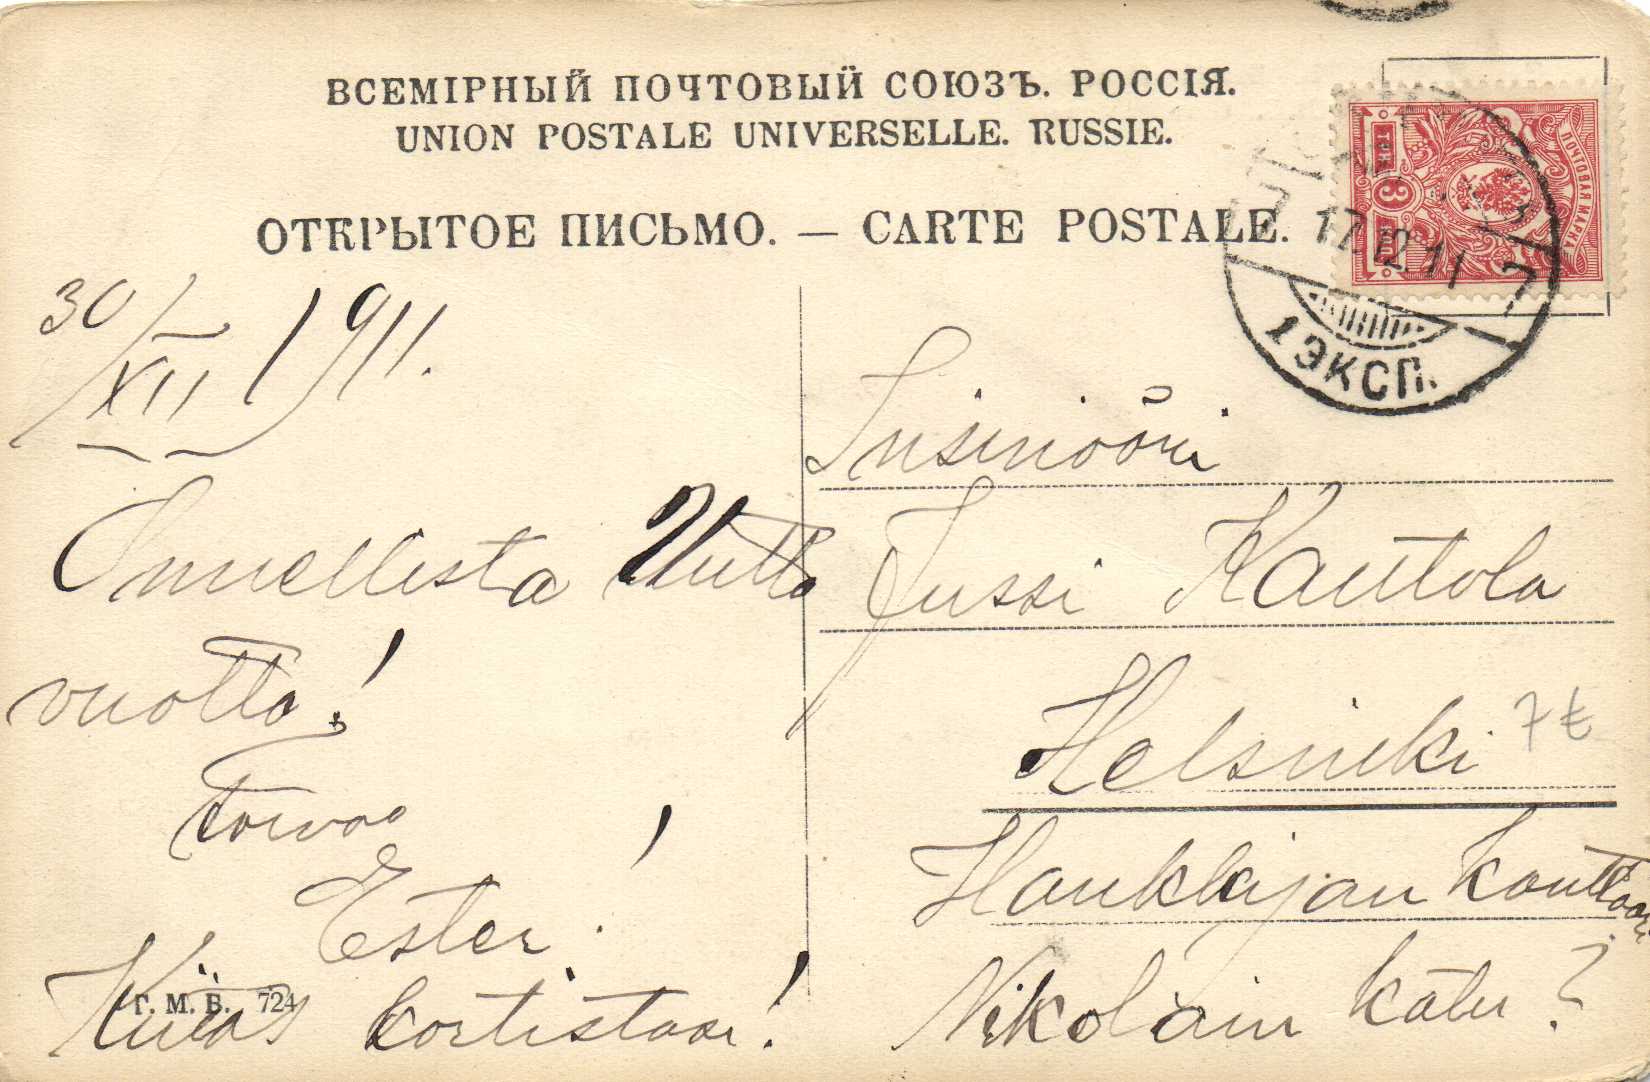 ВСЕМІРНЫЙ ПОЧТОВЫЙ СОЮЗЪ. РОССІЯ.
UNION POSTALE UNIVERSELLE. RUSSIE.
ОТКРЫТОЕ ПИСЬМО. — CARTE POSTALE.
ПОЧТОВАЯ МАРКА
3
17.12.11
7
1 ЭКСП.
30/XII 1911.
Onnellista Uutta
vuotta!
toivoo
Ester.
Kiitos kortistasi!
Г. М. Б. 724
Insinööri
Jussi Kautola
Helsinki
7 €
Hankkijan konttoori
Nikolain katu?